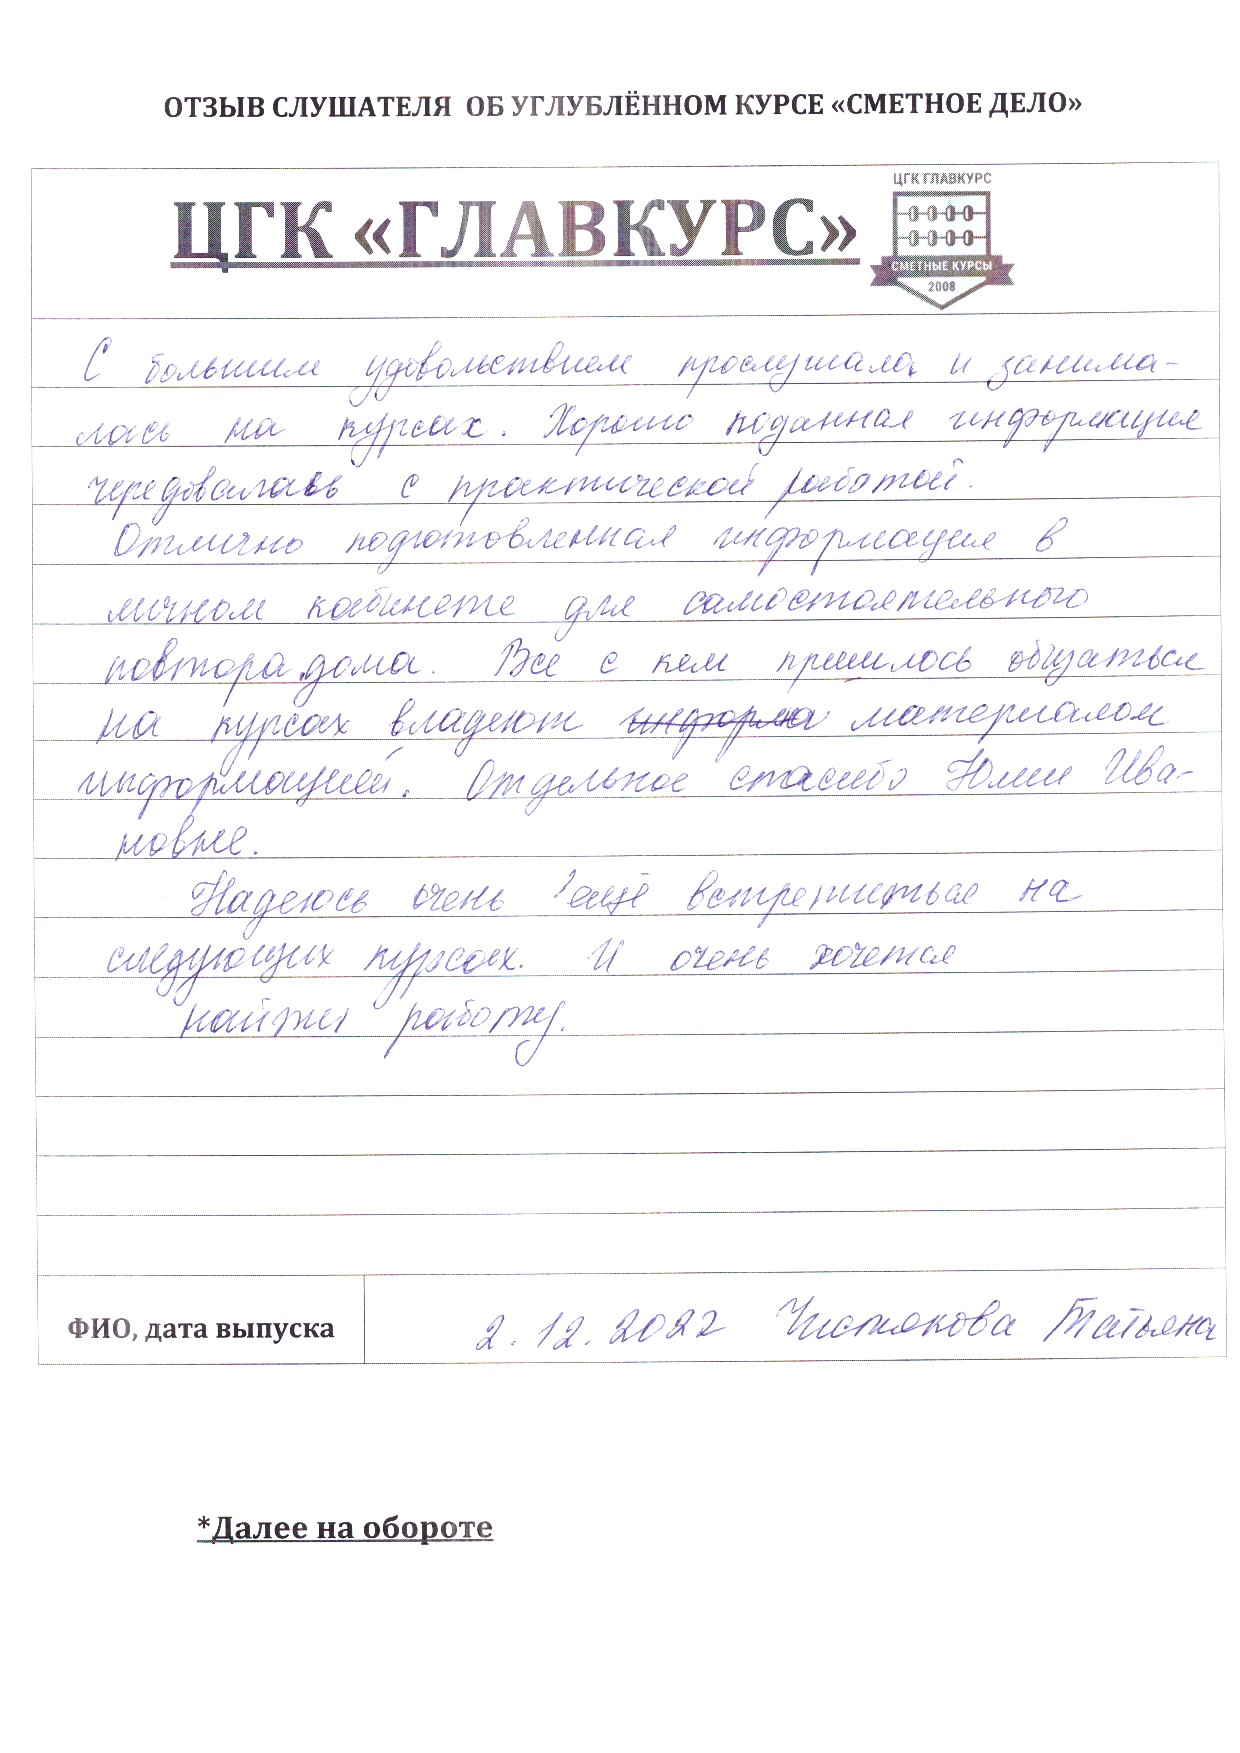 ОТЗЫВ СЛУШАТЕЛЯ ОБ УГЛУБЛЁННОМ КУРСЕ «СМЕТНОЕ ДЕЛО»
ЦГК «ГЛАВКУРС»
ЦГК ГЛАВКУРС
СМЕТНЫЕ КУРСЫ
2008
С большим удовольствием прослушала и занима-
лась на курсах. Хорошо поданная информация
чередовалась с практической работой.
Отлично подготовленная информация в
личном кабинете для самостоятельного
повтора дома. Все с кем пришлось общаться
на курсах владеют информа материалом
информацией. Отдельное спасибо Юлии Ива-
новне.
Надеюсь очень ещё встретиться на
следующих курсах. И очень хочется
найти работу.
ФИО, дата выпуска
2.12.2022 Чистякова Татьяна
*Далее на обороте